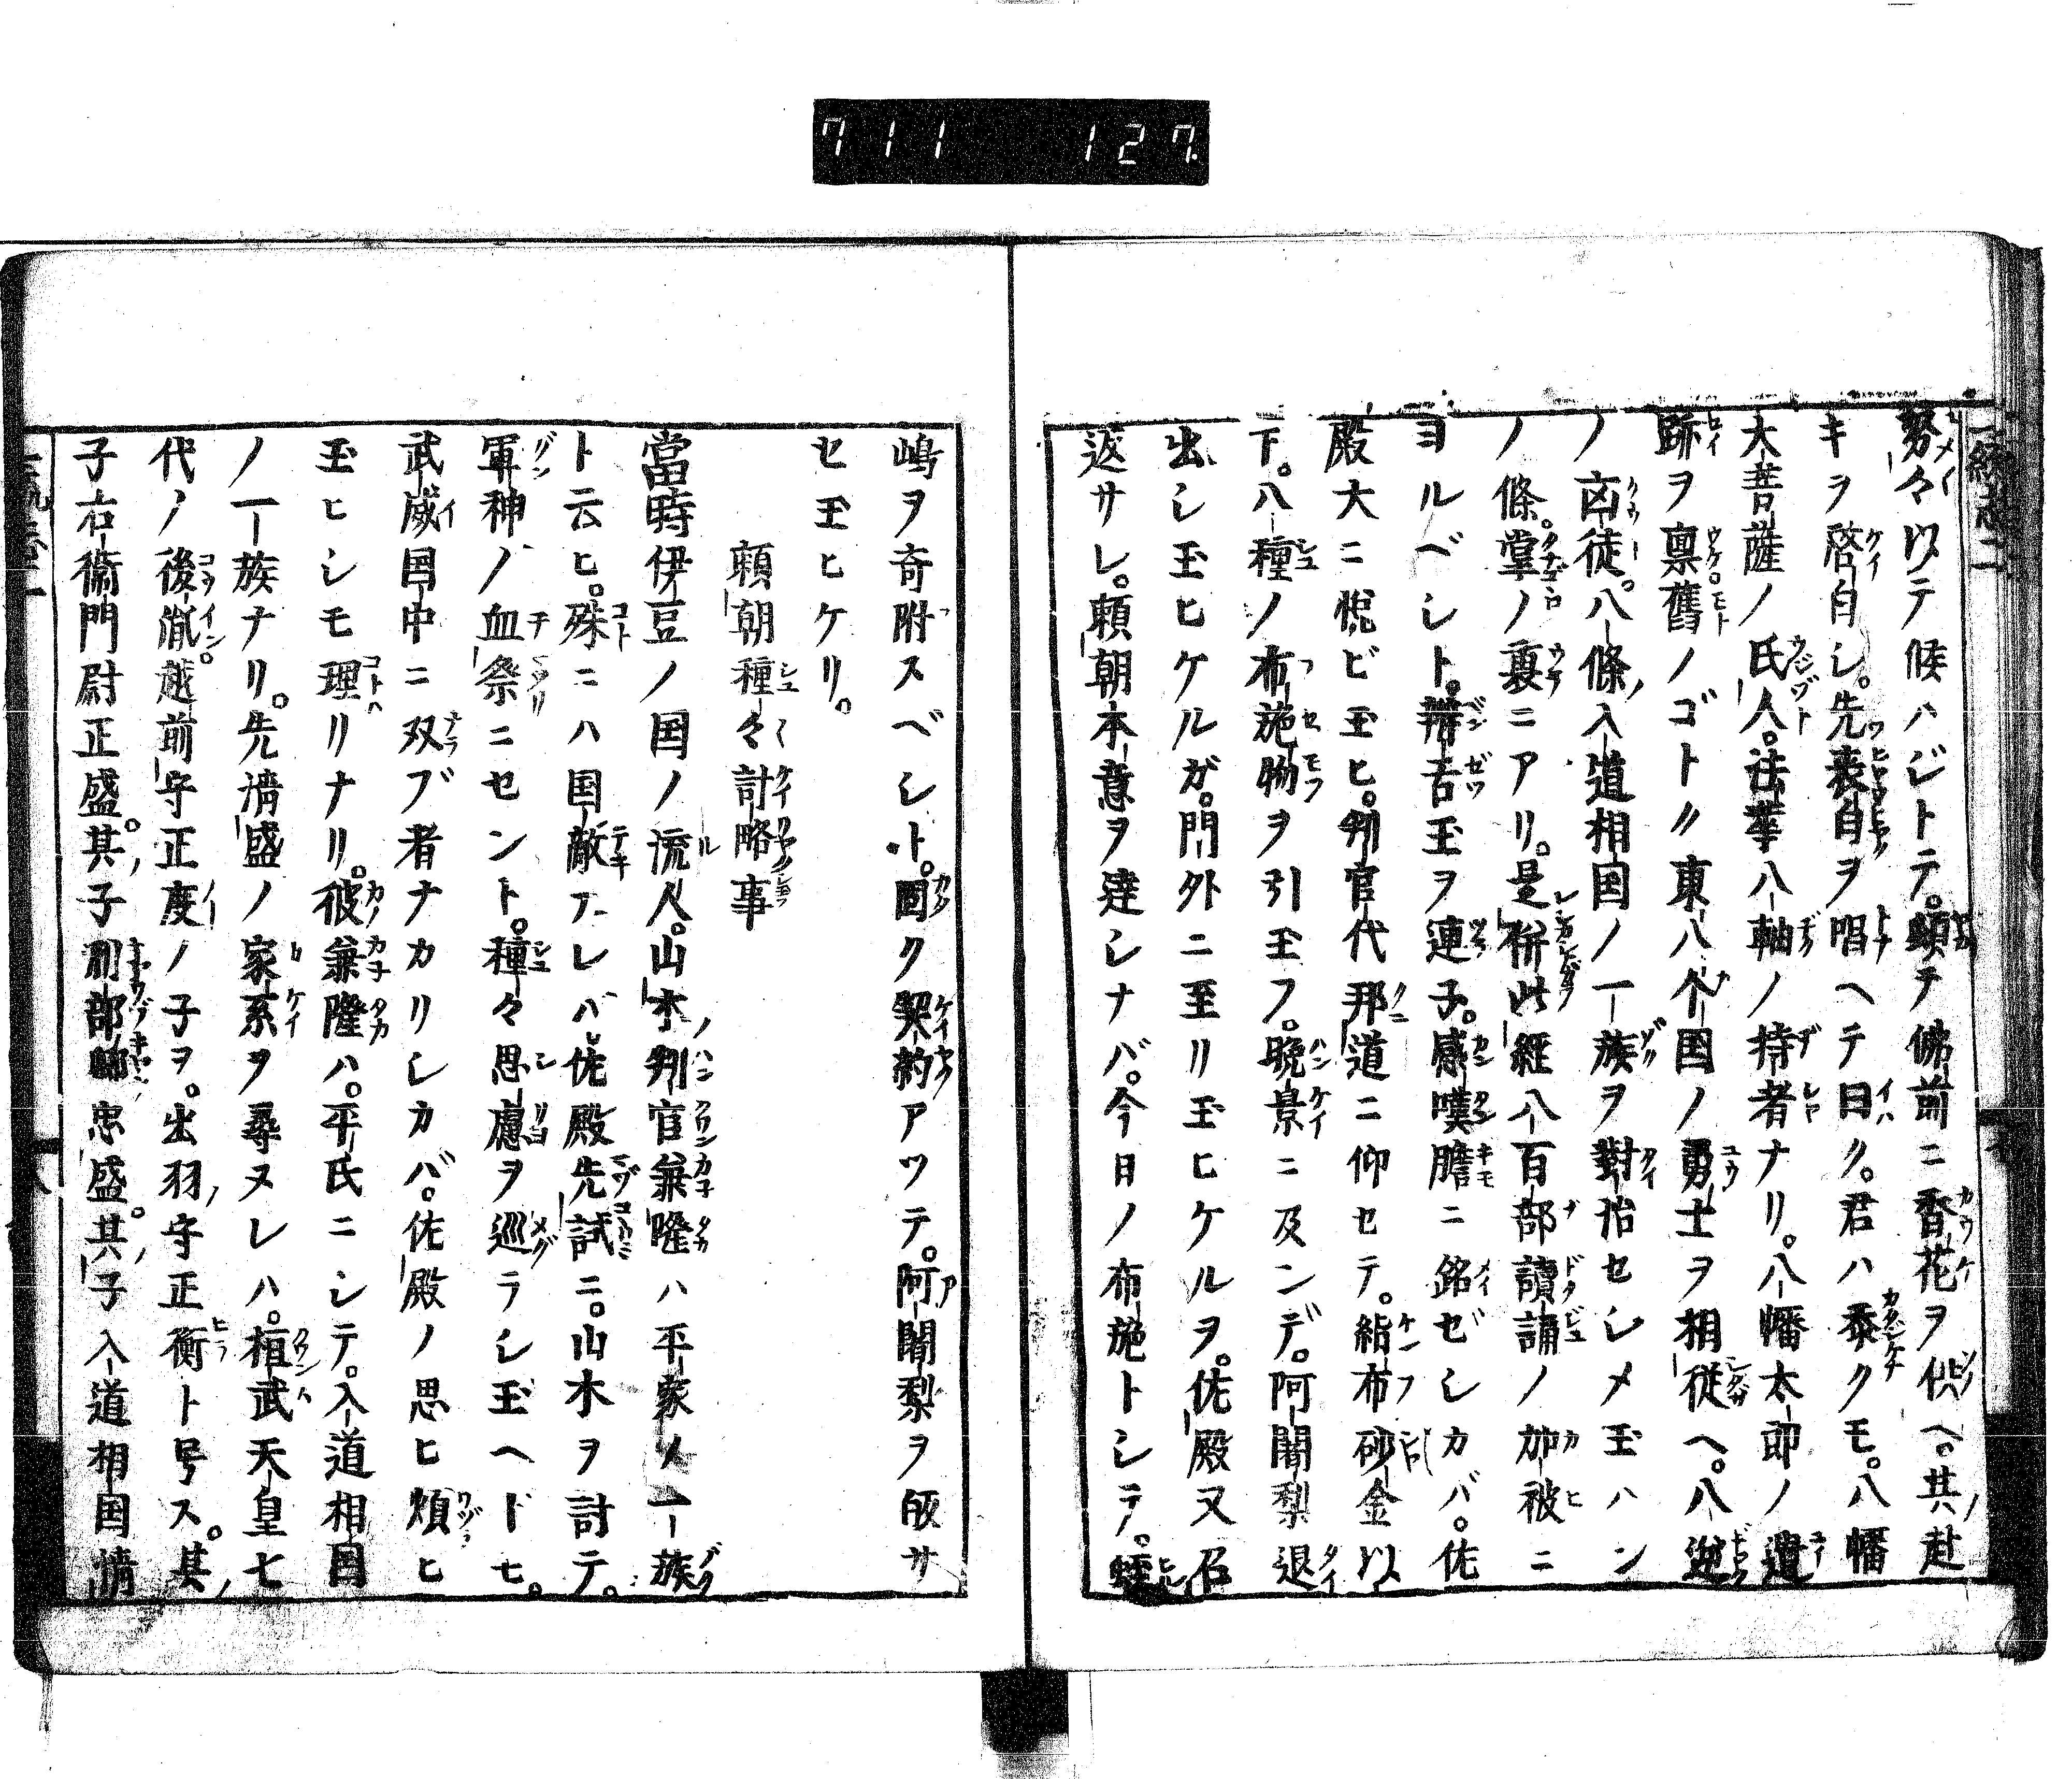 711 127
努々以テ候ハジトテ。頓テ佛前ニ香花ヲ供ヘ。其赴
キヲ啓白シ。先表白ヲ唱ヘテ曰ク。君ハ忝クモ。八幡
大菩薩ノ氏人。法華八軸ノ持者ナリ。八幡太郎ノ遺
跡ヲ禀舊ノゴトク東八个国ノ勇士ヲ相従ヘ。八逆
ノ凶徒。八條入道相国ノ一族ヲ對治セシメ玉ハン
ノ條。掌ノ裏ニアリ。是併此經八百部讀誦ノ加被ニ
ヨルベシト。辯舌玉ヲ連子。感嘆膽ニ銘ゼシカバ。佐
殿大ニ悦ビ玉ヒ。判官代邦道ニ仰セテ。絹布砂金以
下。八種ノ布施物ヲ引玉フ。晩景ニ及ンデ。阿闍梨退
出シ玉ヒケルガ。門外ニ至リ玉ヒケルヲ。佐殿又召
返サレ。頼朝本意ヲ達シナバ。今日ノ布施トシテ。蛭
嶋ヲ奇附スベシト。固ク契約アツテ。阿闍梨ヲ皈サ
セ玉ヒケリ。
頼朝種々計略事
當時伊豆ノ国ノ流人。山木判官兼隆ハ平家ノ一族
ト云ヒ。殊ニハ国敵アレバ。佐殿先試ニ。山木ヲ討テ。
軍神ノ血祭ニセント。種々思慮ヲ巡ラシ玉ヘドモ。
武威国中ニ双ブ者ナカリシカバ。佐殿ノ思ヒ煩ヒ
玉ヒシモ理リナリ。彼兼隆ハ。平氏ニシテ。入道相国
ノ一族ナリ。先清盛ノ家系ヲ尋ヌレハ。桓武天皇七
代ノ後胤。越前守正度ノ子ヲ。出羽守正衡ト号ス。其
子右衛門尉正盛。其子刑部卿忠盛。其子入道相国清